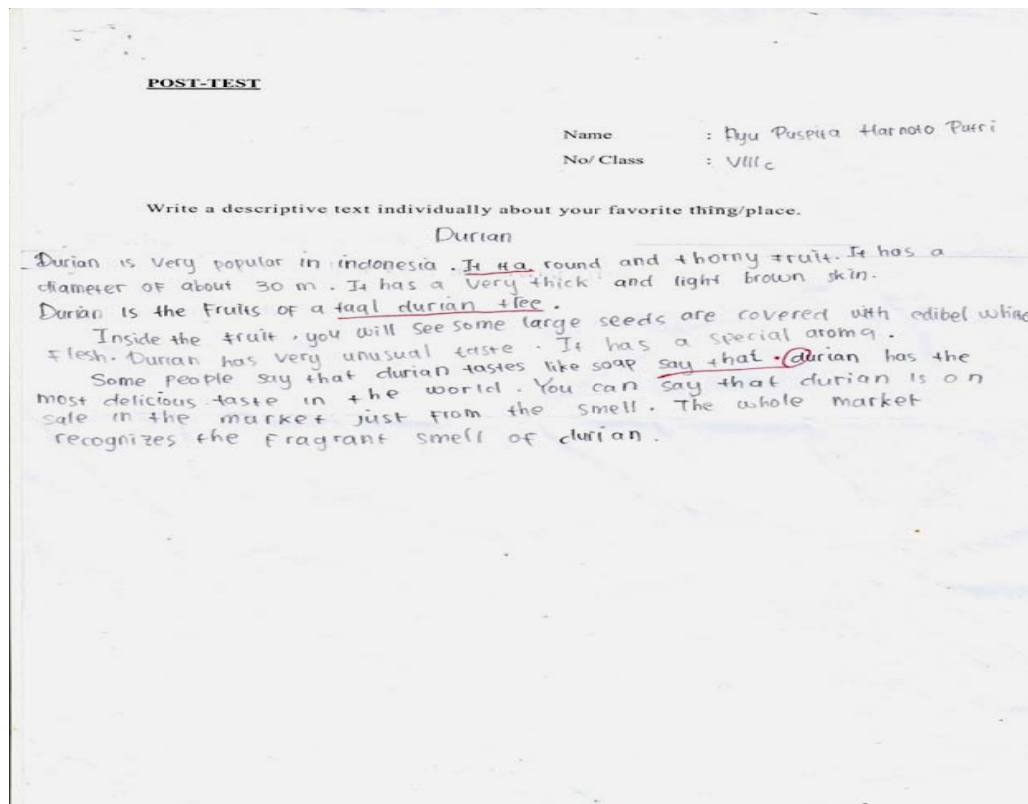 POST-TEST
Name : Ayu Puspita Harnoto Putri
No/ Class : VIII c
Write a descriptive text individually about your favorite thing/place.
Durian
Durian is very popular in indonesia . It Ha round and thorny fruit. It has a
diameter of about 30 m . It has a very thick and light brown skin.
Durian Is the Fruits of a taql durian tree .
Inside the fruit , you will see some large seeds are covered with edibel white
flesh. Durian has very unusual taste . It has a special aroma .
Some people say that durian tastes like soap say that . durian has the
most delicious taste in the world . You can say that durian is on
sale in the market just from the smell . The whole market
recognizes the fragrant smell of durian .